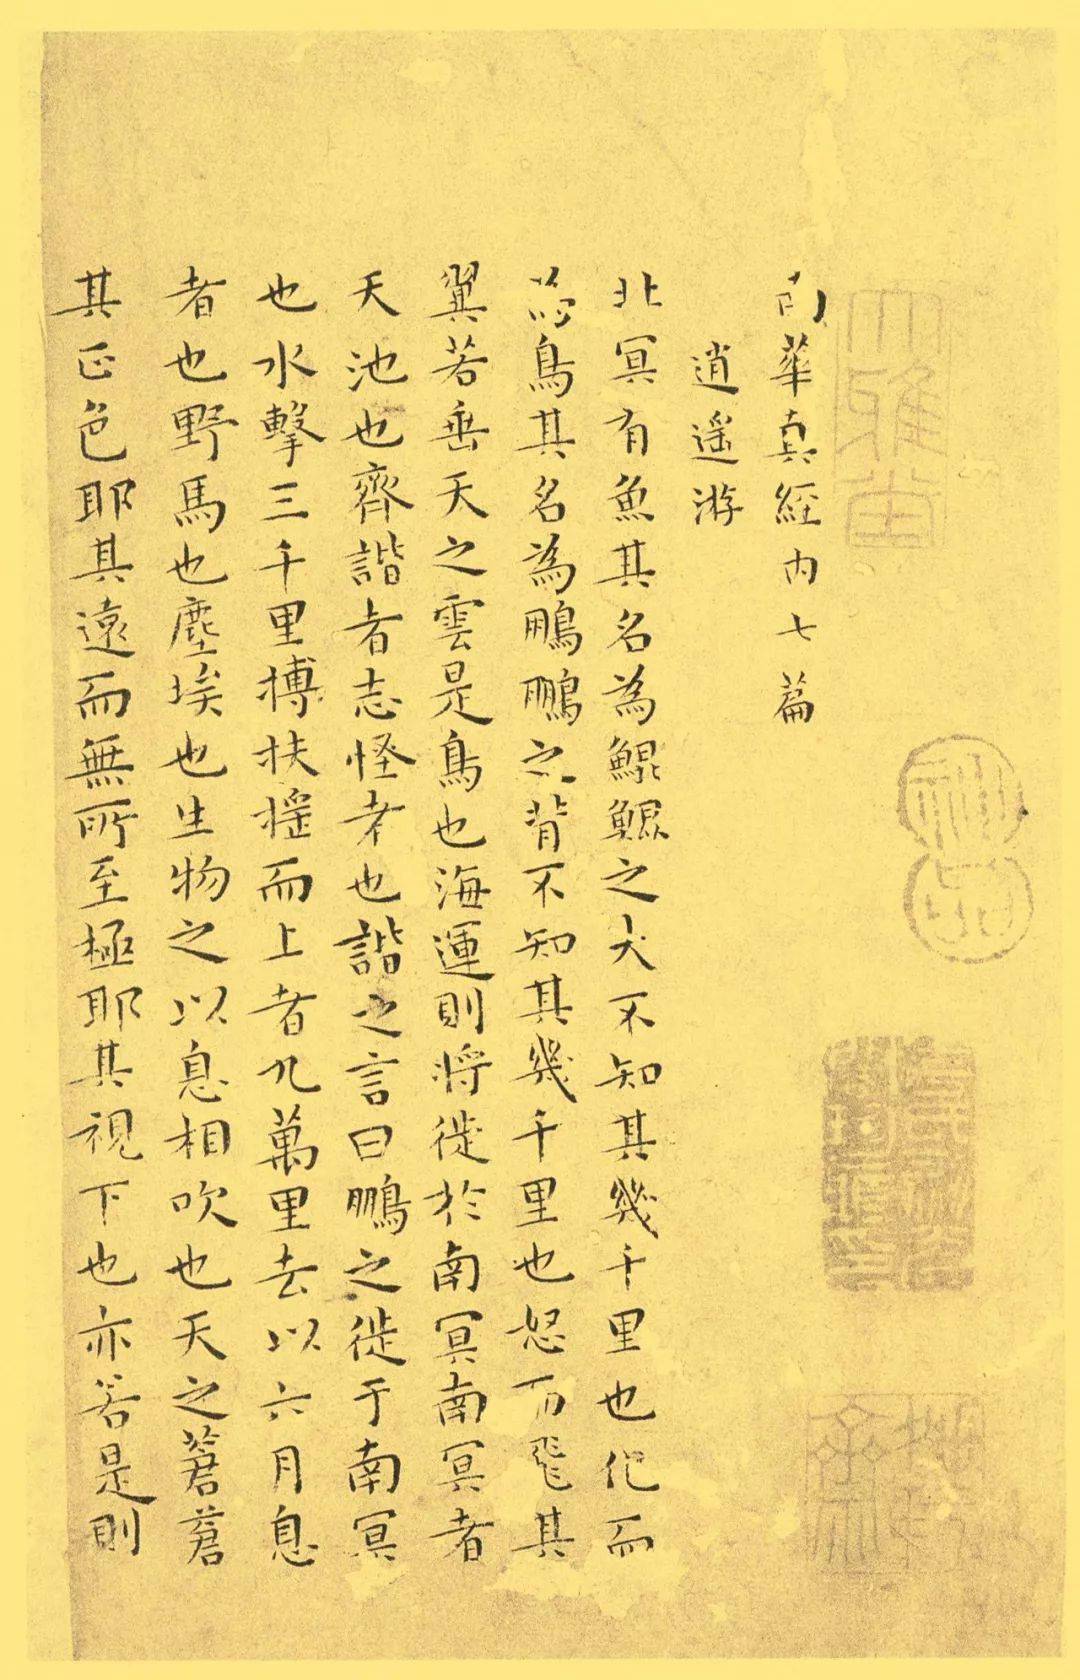 南華真經內七篇
逍遙游
北冥有魚其名為鯤鯤之大不知其幾千里也化而
為鳥其名為鵬鵬之背不知其幾千里也怒而飛其
翼若垂天之雲是鳥也海運則將徙於南冥南冥者
天池也齊諧者志怪者也諧之言曰鵬之徙于南冥
也水擊三千里摶扶搖而上者九萬里去以六月息
者也野馬也塵埃也生物之以息相吹也天之蒼蒼
其正色耶其遠而無所至極耶其視下也亦若是則